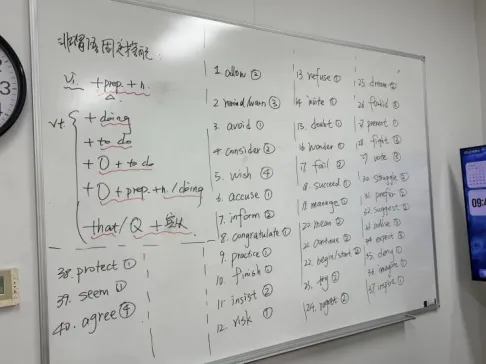 非谓语固定搭配:
vi. + prep. + n.
vt. + doing
+ to do
+ O + to do
+ O + prep. + n. / doing
that / Q +
38. protect ①
39. seem ①
40. agree ④
1. allow ②
2. remind/warn ③
3. avoid ①
4. consider ③
5. wish ④
6. accuse ①
7. inform ②
8. congratulate ①
9. practice ①
10. finish ①
11. insist ②
12. risk ①
13. refuse ①
14. invite ①
15. doubt ①
16. wonder ①
17. fail ②
18. succeed ①
19. manage ①
20. mean ②
21. continue ②
22. begin/start ②
23. try ②
24. regret ②
25. dream ①
26. forbid ②
27. prevent ①
28. fight ②
29. vote ②
30. struggle ②
31. prefer
32. suggest ②
33. advise
34. expect
35. deny ①
36. imagine ①
37. inspire ①